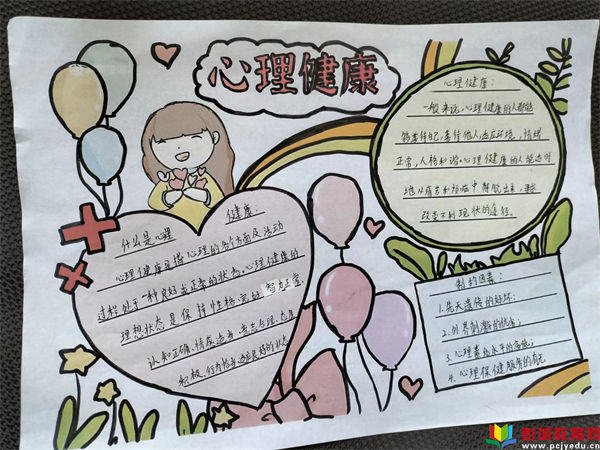 心理健康
什么是心理
健康:
心理健康是指心理的各个方面及活动
过程处于一种良好或正常的状态。心理健康的
理想状态是保持性格完好、智力正常、
认知正确、情感适当、意志合理、态度
积极、行为恰当、适应良好的状态
心理健康:
一般来说,心理健康的人都能
够善待自己,善待他人,适应环境,情绪
正常,人格和谐。心理健康的人能适时
地从痛苦和烦恼中解脱出来,
改变不利现状的途径。
制约因素:
1.先天遗传的好坏:
2.外界刺激的优劣;
3.心理素质水平的高低;
4.心理保健服务的有无
www.pcjyedu.cn